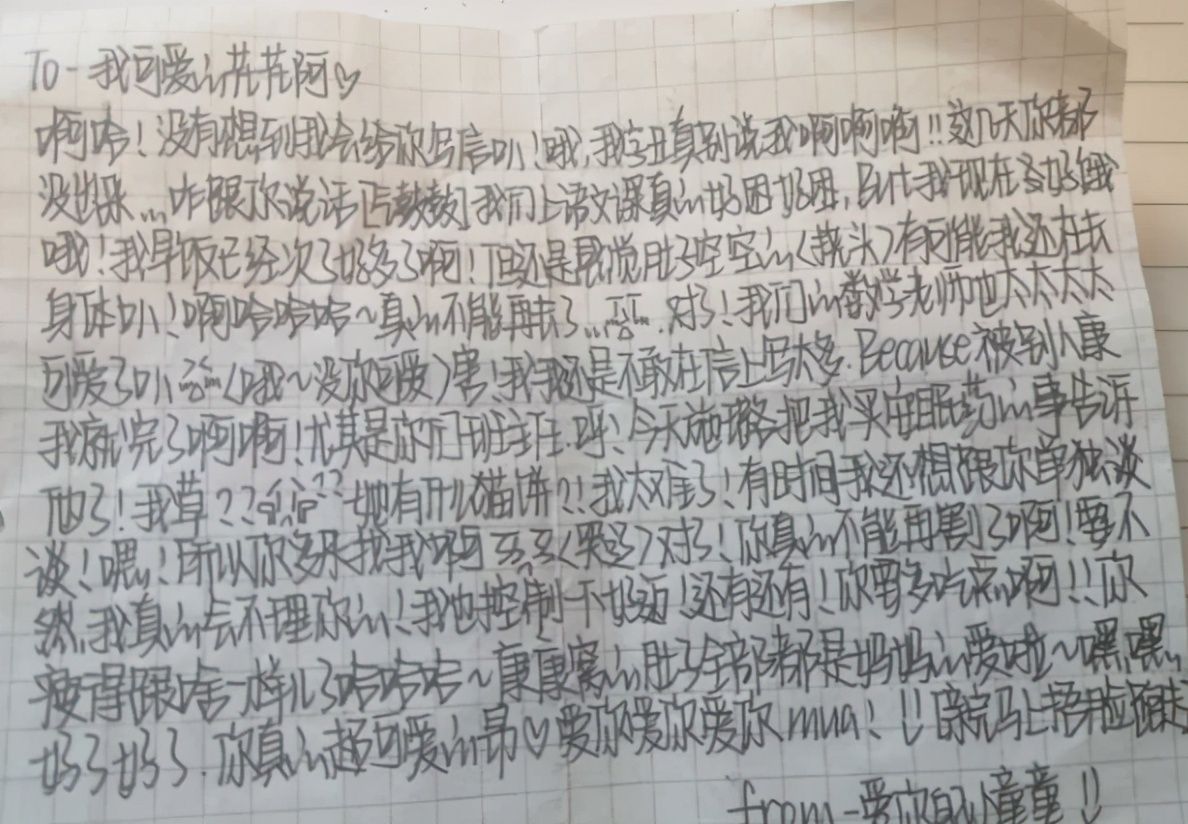 To-我可爱的芹芹阿♡
啊哈！没有想到我会给你写信叭！哦，我字丑真别说我啊啊啊!!这几天你都
没出来,,,咋跟你说话[气鼓鼓]我们上语文课真的好困好困，But我现在各好饿
哦！我早饭已经次了好多了啊！但还是感觉肚子空空的(挠头)有可能我还在长
身体叭！啊哈哈哈哈~真的不能再长了...对了！我们的数学老师也太太太太
可爱了叭(哦~没你可爱)害！我我还是不敢在信上写太多.Because被别人康
我就完了啊啊！尤其是你们班主任.呼！今天她楼把我买安眠药的事告诉
他了！我草??她有什么猫饼?!我太难了！有时间我还想跟你单独谈
谈！嘿,,！所以你多来找我啊(哭泣)对了！你真的不能再割了啊！要不
然,,我真的会不理你的！我也控制一下好趴！还有还有！你要多吃点啊!!你
瘦得跟啥一样儿了哈哈哈~康康窝的肚子全部都是妈妈的爱啦~嘿,嘿,,
好了好了.你真的超可爱的昂♡爱你爱你爱你mua！!!亲完马上捂脸跑走
from-爱你的小童童!!